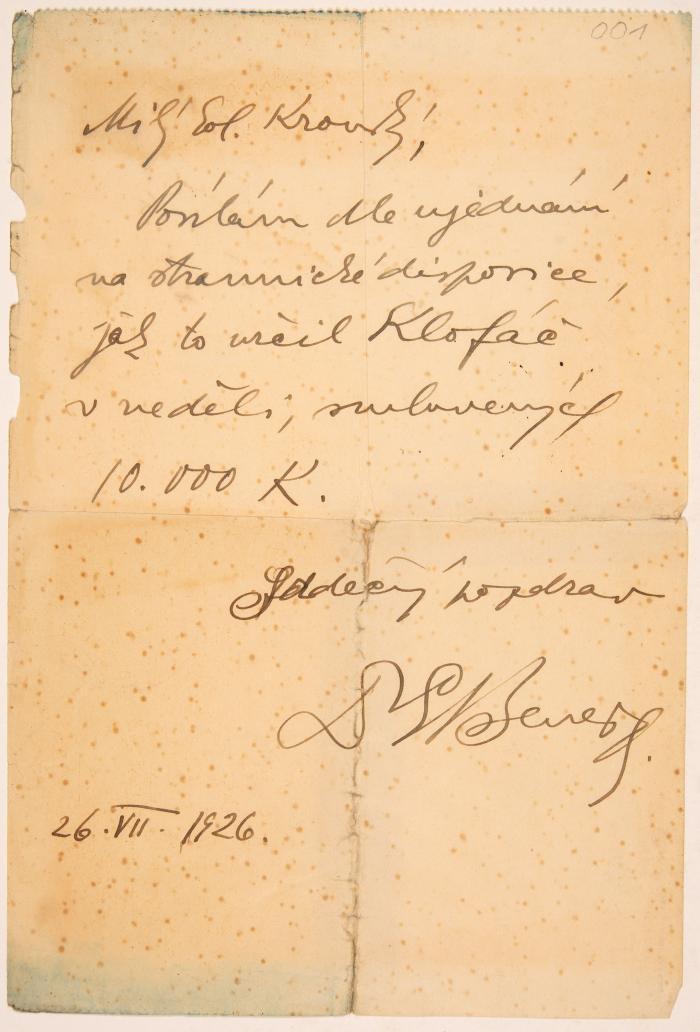 001
Milý Kol. Kronský,
Posílám dle ujednání
na strannické disposice,
jak to určil Klofáč
v neděli, smluvených
10.000 K.
Srdečný pozdrav
Dr E Beneš.
26.VII. 1926.